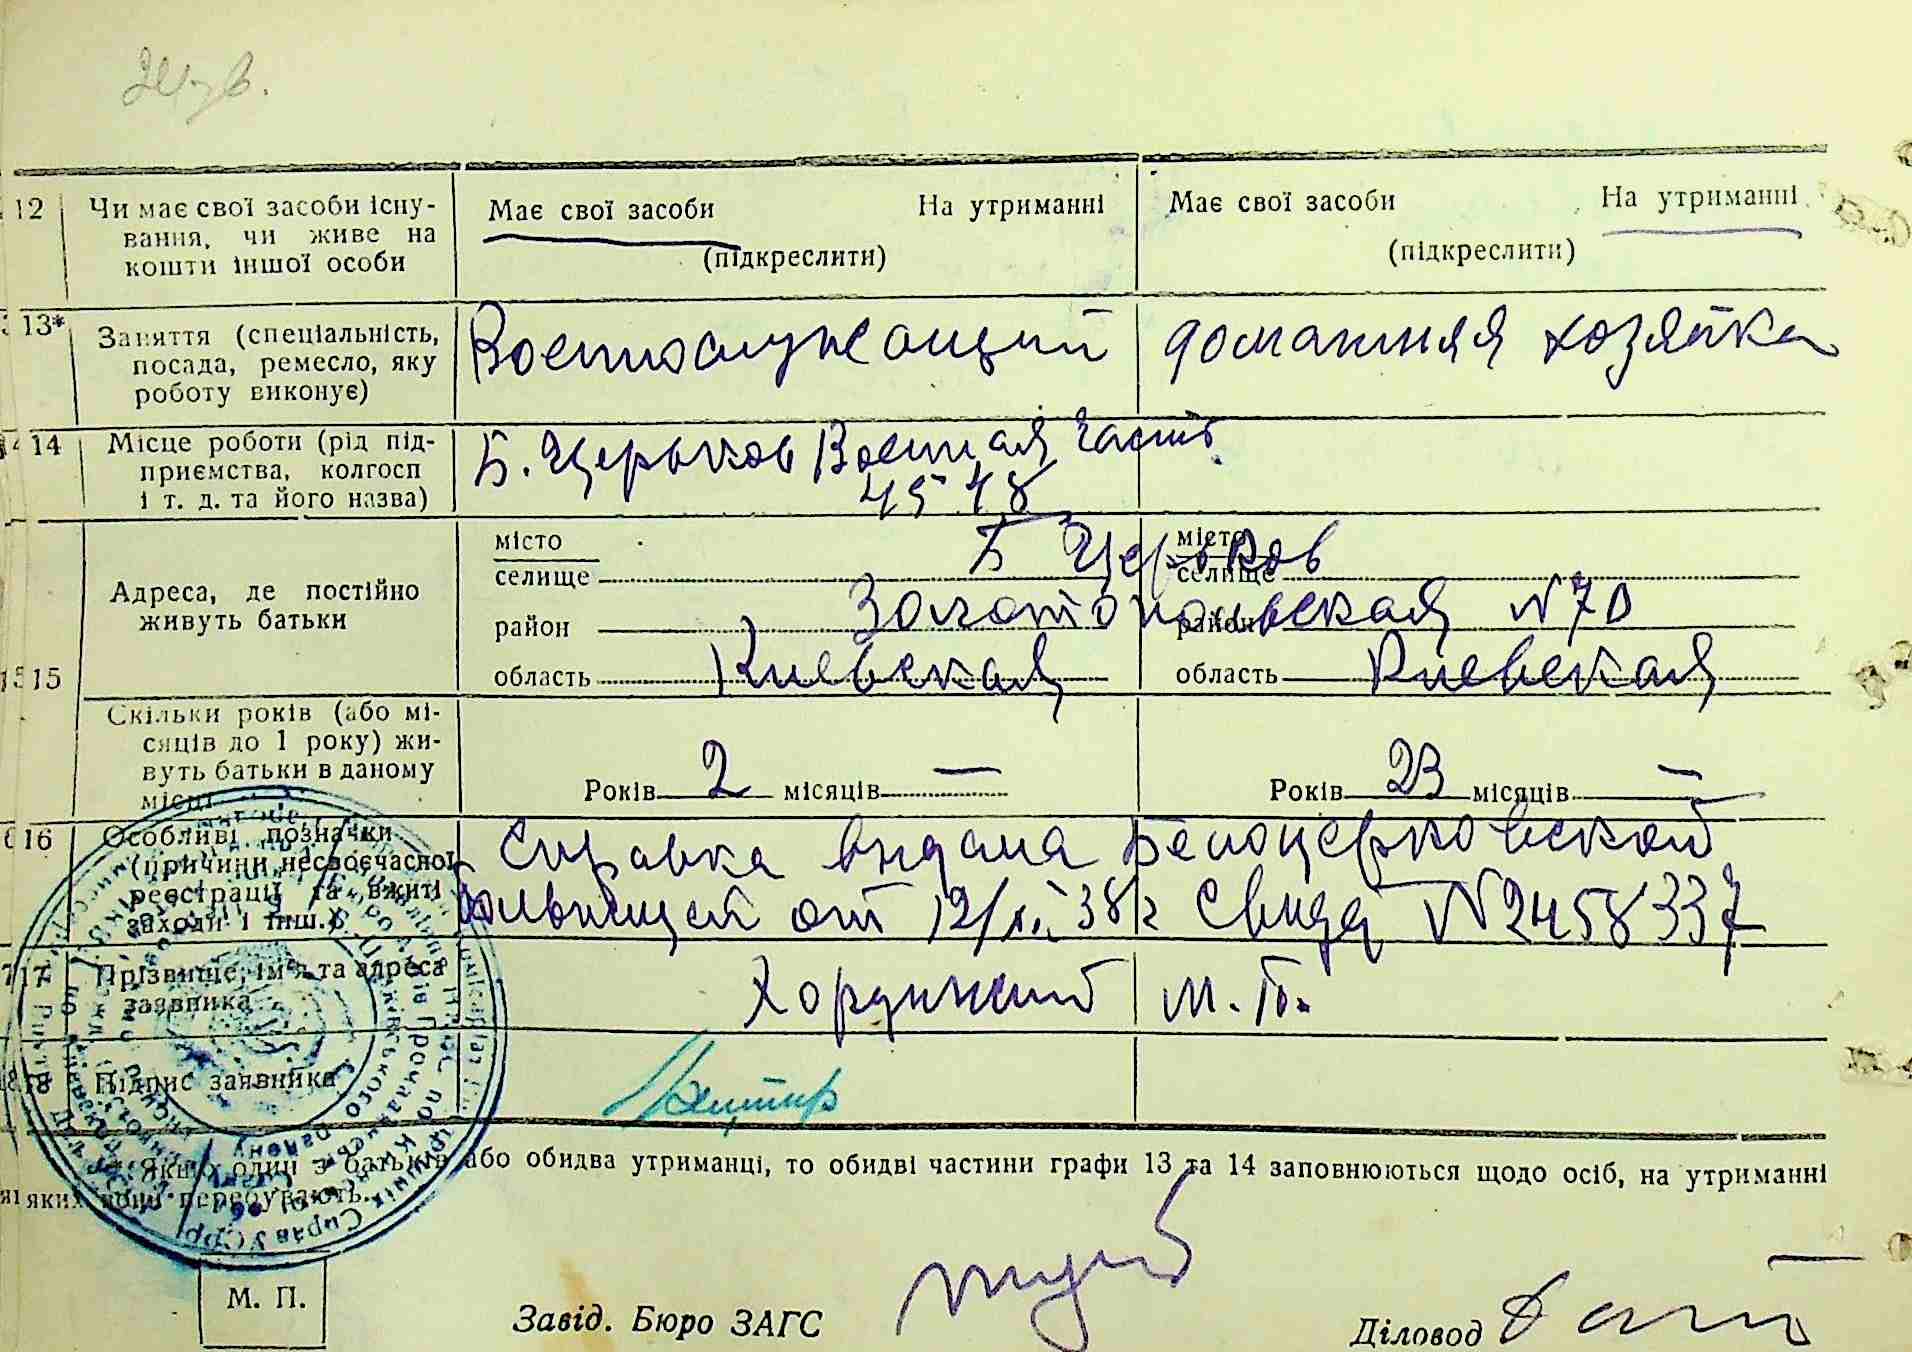 12 Чи має свої засоби існу-
вання, чи живе на
кошти іншої особи
Має свої засоби На утриманні
(підкреслити)
Має свої засоби На утриманні
(підкреслити)
13* Заняття (спеціальність,
посада, ремесло, яку
роботу виконує)
Военнослужащий
домашняя хозяйка
14 Місце роботи (рід під-
приємства, колгосп
і т. д. та його назва)
Б. Церьков Военная Часть
4548
15 Адреса, де постійно
живуть батьки
місто
селище
район
область Киевская
Б Церьков
Золотопольская N70
місто
селище
район
область Киевская
Скільки років (або мі-
сяців до 1 року) жи-
вуть батьки в даному
місці
Років 2 місяців —
Років 23 місяців —
16 Особливі позначки
(причини несвоєчасної
реєстрації та вжиті
заходи і інш.)
Справка видана Белоцерковской
больницей от 12/ 38 г Свид N2458337
17 Прізвище, ім'я та адреса
заявника
М. П.
18 Підпис заявника
* Якщо один з батьків або обидва утриманці, то обидві частини графи 13 та 14 заповнюються щодо осіб, на утриманні
яких вони перебувають.
М. П.
Завід. Бюро ЗАГС
Діловод